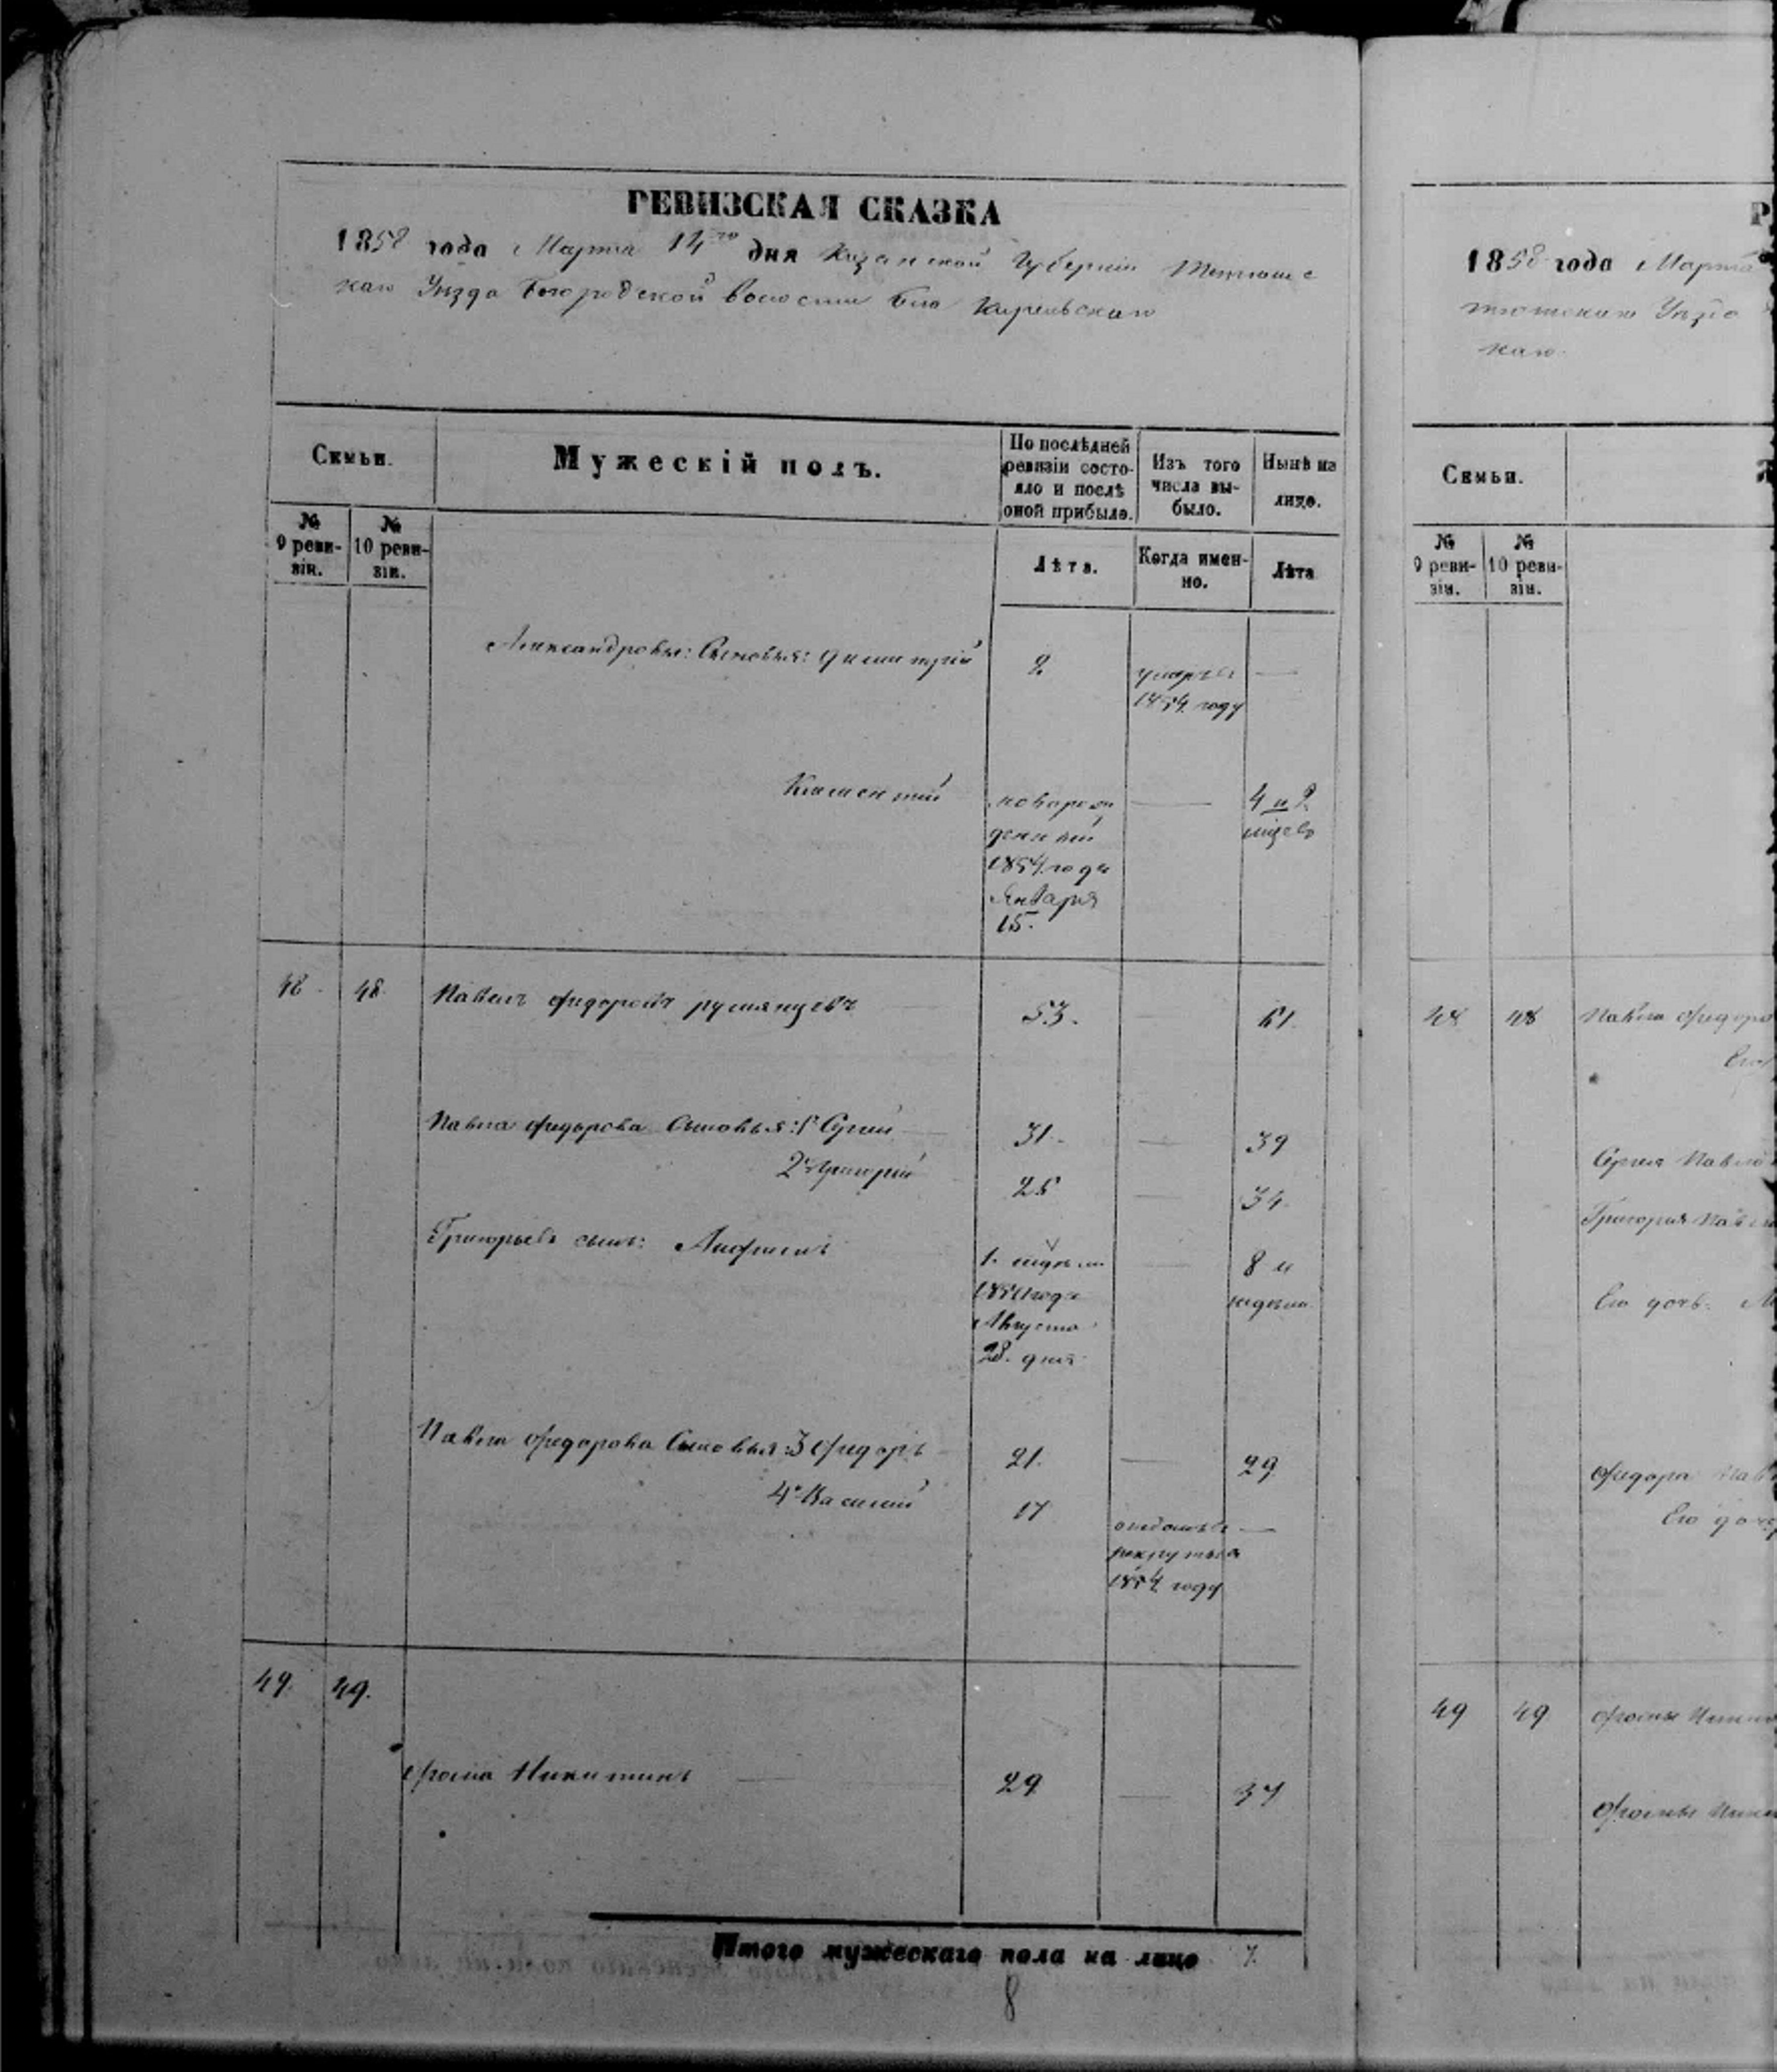 РЕВИЗСКАЯ СКАЗКА
1858 года Марта 14го дня Казанской Губернии Тетюшс
каго Уѣзда Богородской волости
Семьи.
Мужескій полъ.
По послѣдней ревизіи состо-
яло и послѣ
оной прибыло.
Изъ того
числа вы-
было.
Нынѣ на
лицо.
№
9 реви-
зіи.
№
10 реви-
зіи.
Лѣта.
Когда имен-
но.
Лѣта
Александровы: Сыновья: Димитрій
2
умеръ
1854 году
Климентій
новорож
денный
1854 года
Января
15.
4 и 2
мѣсец
48
48
Павелъ Федоровъ Румянцевъ
53.
61.
Павла Федорова Сыновья: 1й Сергій
31.
39
2й Григорій
26
34.
Григорьевъ сынъ:
1.
1850 года
Августа
28. дня
8 и
недели
Павла Федорова Сыновья: 3 Федоръ
21.
29
4й Василій
17
отданъ в
рекруты в
1854 году
49.
49.
Фома Никитинъ
29
37
Итого мужескаго пола на лицо 7.
8
1858 года Марта
Уѣзда
каго
Семьи.
№
9 реви-
зіи.
№
10 реви-
зіи.
48
48
Павла Федоро
Его
Сергея Павло
Григорія Павло
Его дочь:
Федора Пав
Его доче
49
49
Фомы Ники
Фомы Ники